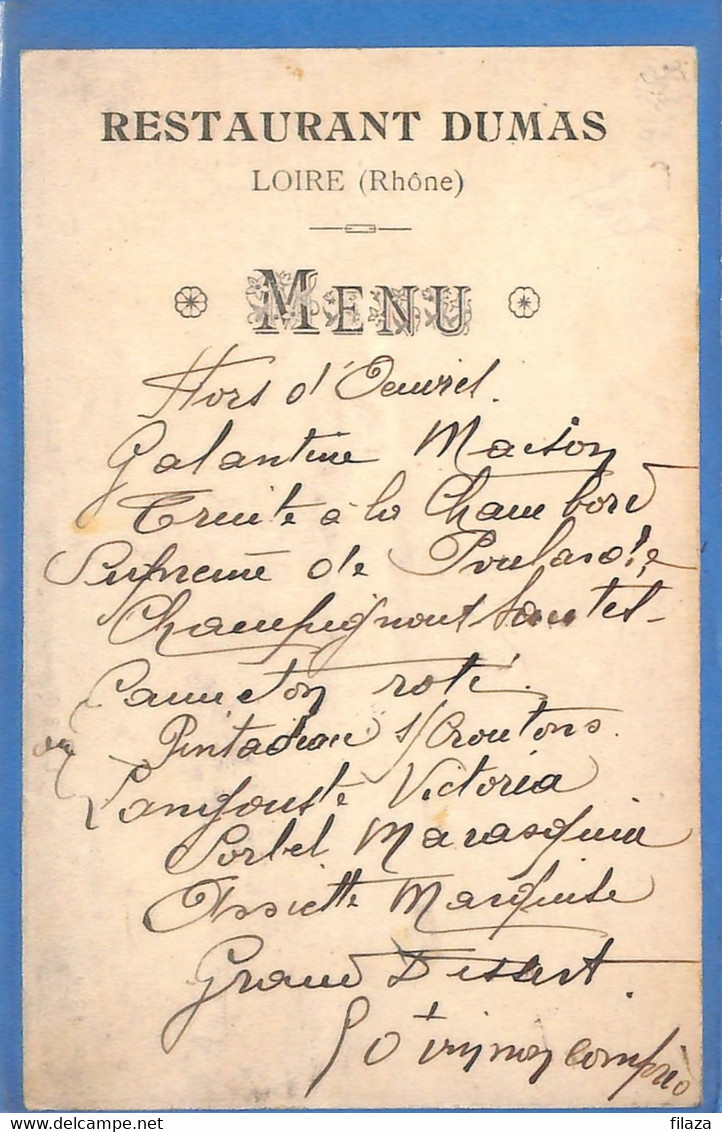 RESTAURANT DUMAS
LOIRE (Rhône)
MENU
Hors d'Oeuvres.
Galantine Maison
Truite à la Chambord
Suprême de Poularde
Champignons Sautés
Canneton roti
ou
Pintadeau s/ Croutons.
Langouste Victoria
Sorbet Marasquin
Assiette Marquise
Grand Dessert.
vin non compris
filaza